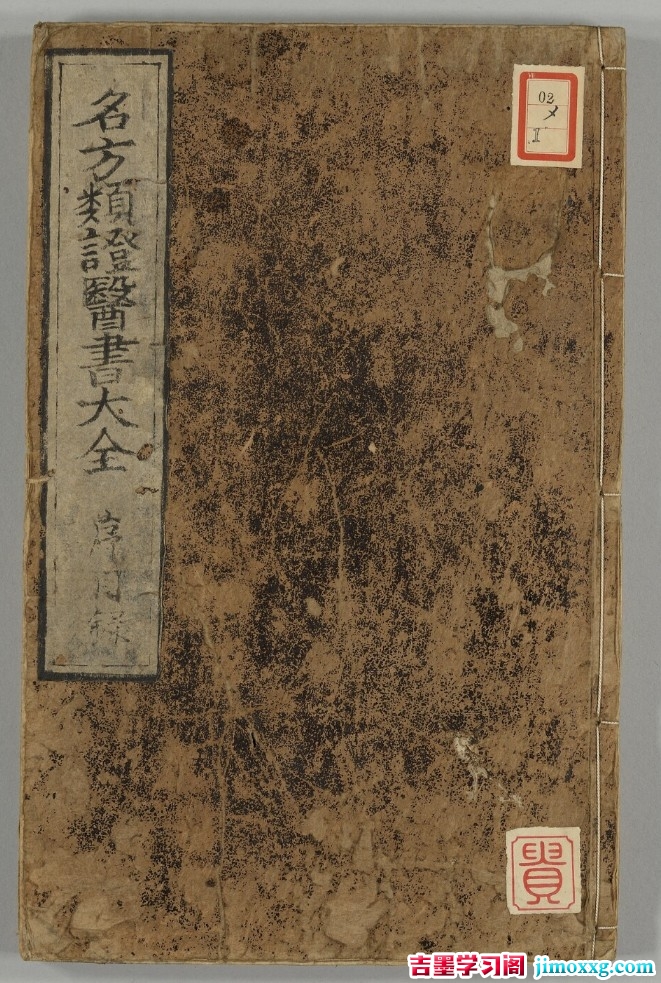 名方類證醫書大全
序目録
02
メ
I
貴
吉墨学习阁 jimoxxg.com